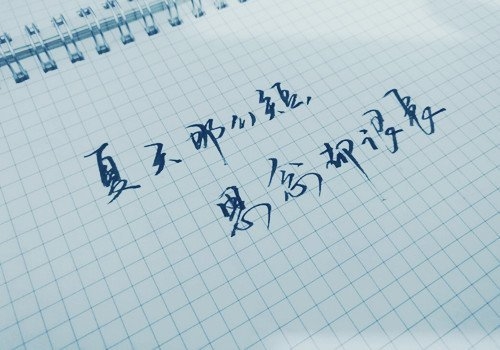 夏天那么短,
思念却很長